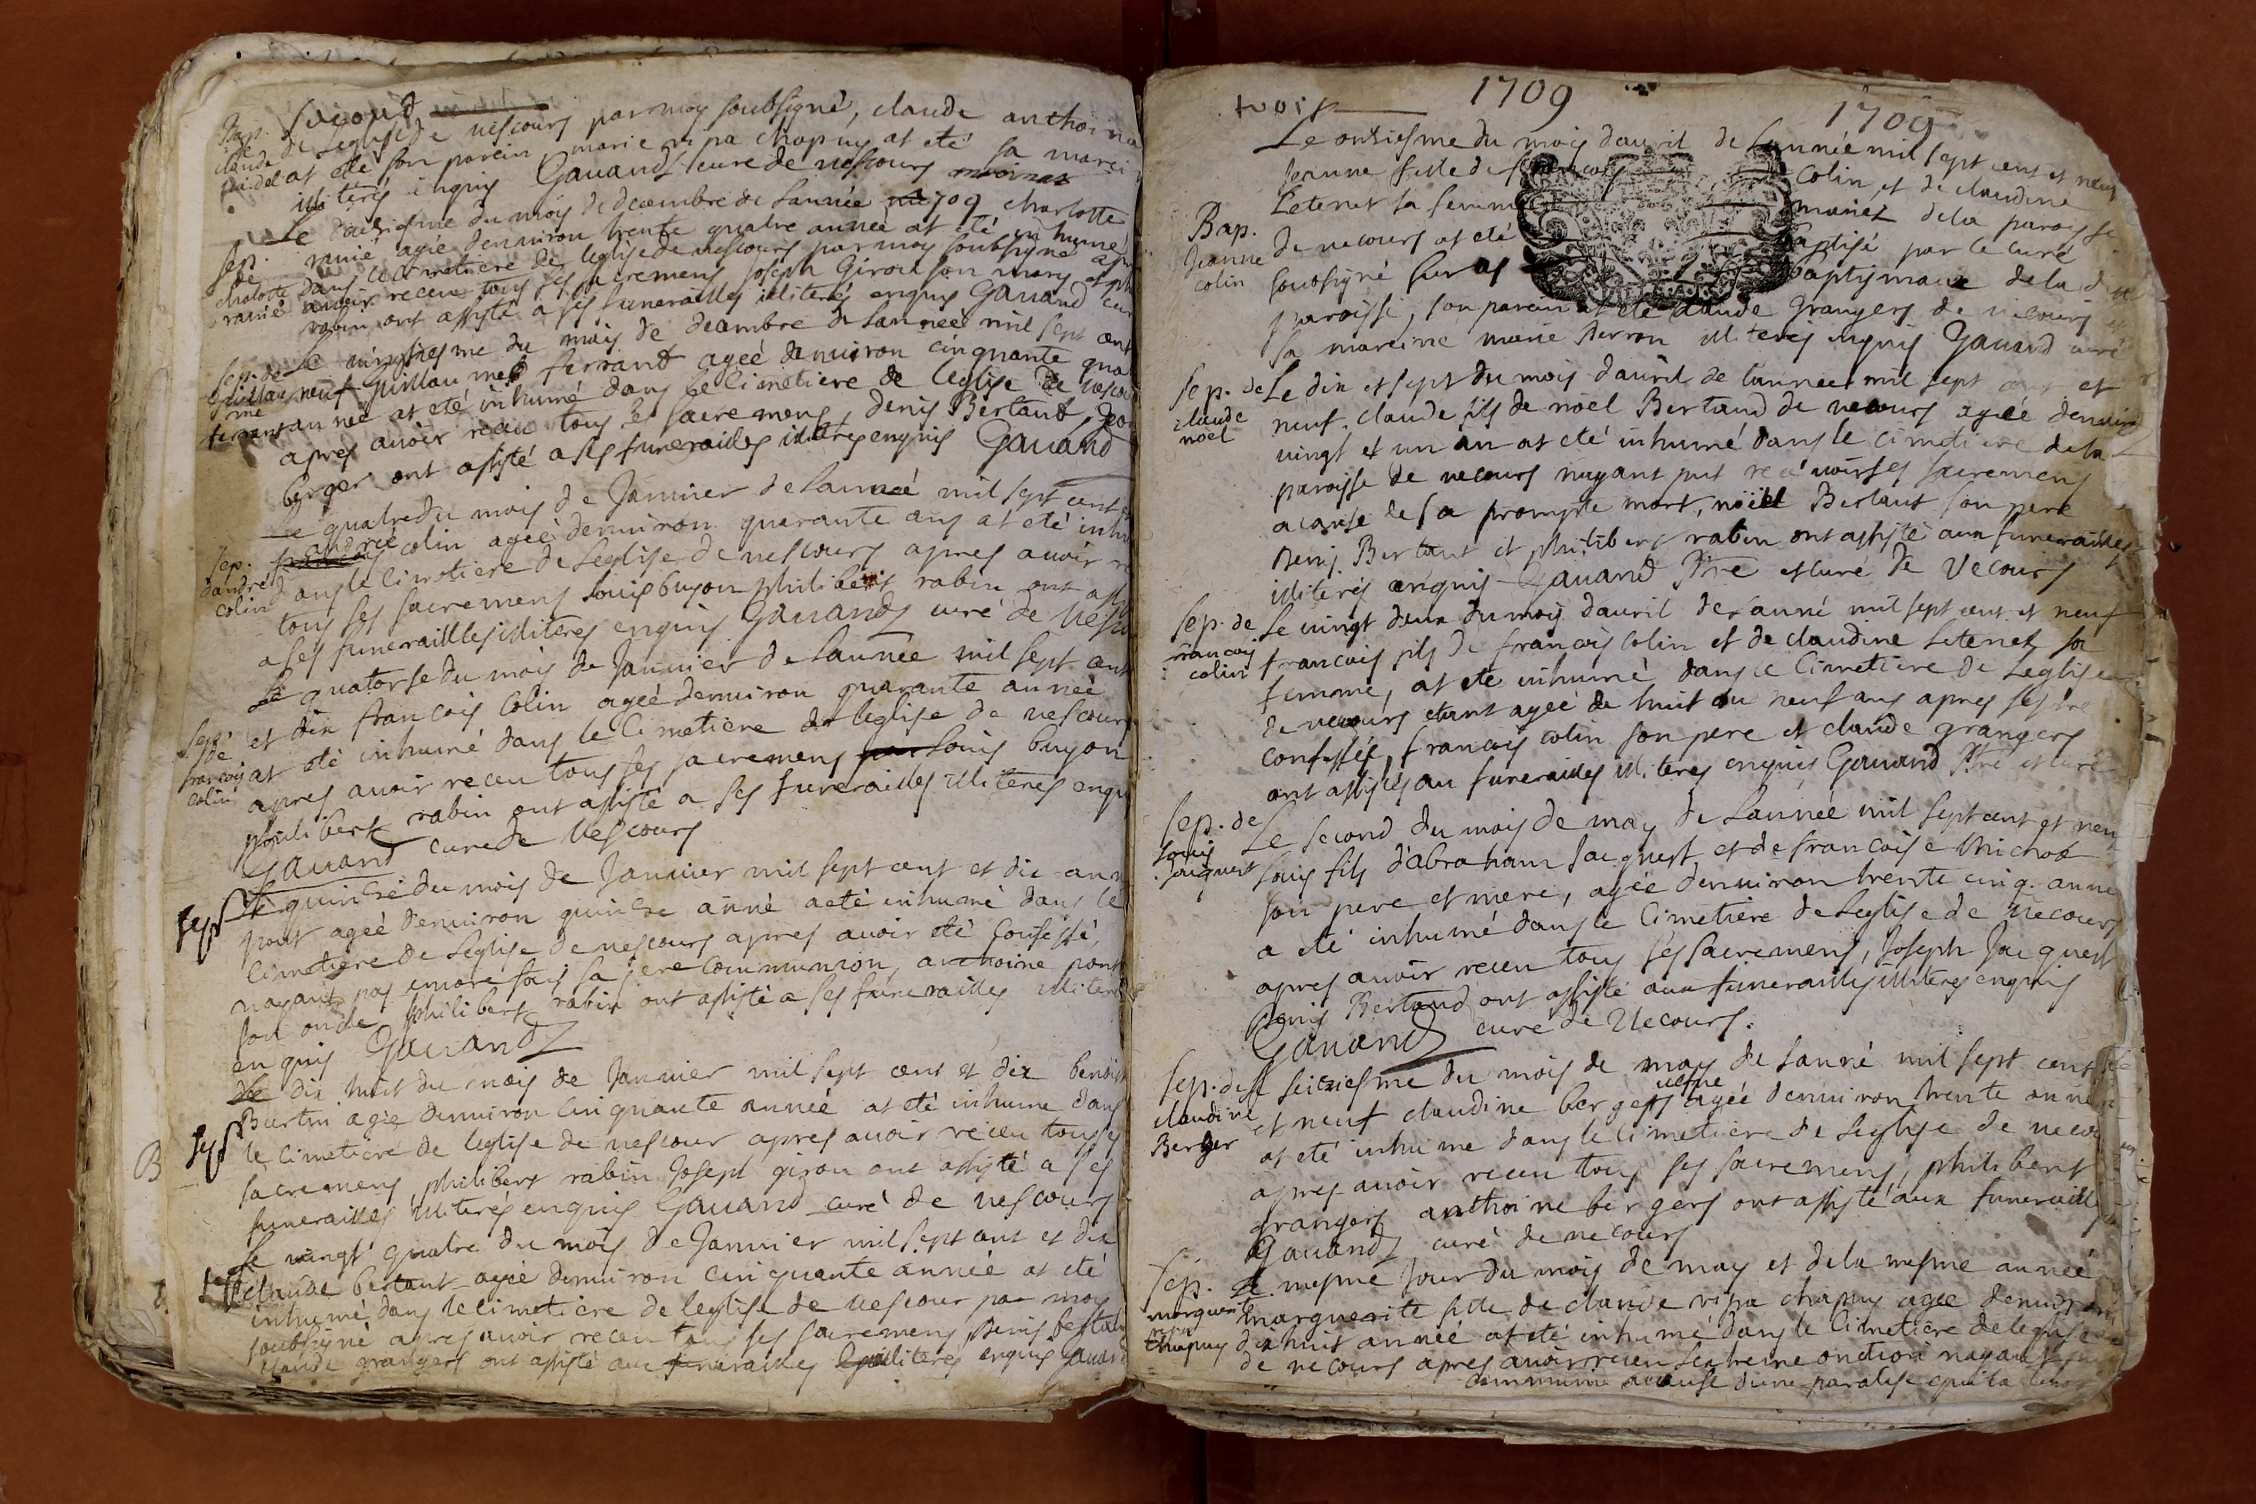 second
Bap.
de Leglise de vescours par moy soubsigné, claude anthoine
claude
at eté son parein, marie vipa chapuy at eté sa marei
illiterés enquis Gauand curé de vescours
Le du mois de decembre de Lannée 1709 charlotte
sep.
ramé agée denuiron trente quatre année at eté inhumé
de
dans le Cimetiere de leglise de vescours par moy soubsigné
charlotte
ramé
auoir receu tous ses sacremens Joseph Girou son mary et
rabin ont assisté a ses funerailles illiterés enquis Gauand cur
Le vingtiesme du mois de decembre de Lannée mil sept cent
sep. de
guillau
me
ferrant
neuf guillaume ferrant ageé denuiron cinquante qua
année at eté inhumé dans le Cimetiere de leglise de vescou
apres auoir receu tous les sacremens, denis Bertaut,
berger ont assisté a ses funerailles illiterés enquis Gauand
Le quatre du mois de Januier de Lanneé mil sept cent
sep.
dandré
colin
andrée
colin ageé denuiron quarante ans at eté inhu
dans le Cimetiere de Leglise de vescours apres auoir re
tous ses sacremens Louis buyon philibert rabin ont ass
a ses funerailles illiterés enquis Gauand curé de Vesc
Le quatorse du mois de Januier de Lannée mil sept cent
sep.
de
francois
colin
et dix francois Colin ageé denuiron quarante anneé
at eté inhumé dans le Cimetiere de leglise de vescours
apres auoir receu tous ses sacremens par Louis buyon
philibert rabin ont assisté a ses funerailles illiterés enqu
Gauand curé de Vescours
sep
Le quinse du mois de Januier mil sept cent et dix ann
pont ageé denuiron quinse anné a eté inhumé dans le
Cimetiere de Leglise de vescours apres auoir eté Confessé,
nayant pas encore fais sa 1ere Communion, anthoine pont
son oncle philibert rabin ont assisté a ses funerailles illiteré
enquis Gauand
Le dix huit du mois de Januier mil sept cent et dix benoist
sep
Burtin ageé denuiron Cinquante anneé at eté inhumé dans
B
le Cimetiere de leglise de vescour apres auoir receu tous
sacremens, philibert rabin Joseph girou ont assisté a ses
funerailles illiterés enquis Gauand curé de vescours
Le vingt quatre du mois de Januier mil sept cent et dix
claude bertaut ageé denuiron Cinquante année at eté
inhumé dans le Cimetiere de leglise de vescour par moy
soubsigné apres auoir receu tous ses sacremens Denis bertau
claude grangers ont assisté aux funerailles illiterés enquis Gauand
trois
1709
1709
Le onsiesme du mois dauril de Lannée mil sept cent et neuf
Jeanne fille de francois Colin et de claudine
Letenet sa femme mariez de la paroisse
Bap.
Jeanne
colin
de vecours at eté baptisé par le curé
soubsigné sur baptismaux de la
paroisse, son parein at eté claude grangers de vecours et
sa mareine marie Berron illiterés enquis Gauand curé
sep. de
claude
noel
Le dix et sept du mois dauril de Lannée mil sept cent et
neuf. claude fils de noel Bertaud de vecours ageé denuiron
vingt et un an at eté inhumé dans le Cimetiere de la
paroisse de vecours nayant put receuoir ses sacremens
a cause de sa prompte mort, noïel Bertaut son pere
Denis Bertaut et philibert rabin ont assisté aux funerailles
illiterés enquis Gauand Ptre et curé de Vecours
sep. de
francois
colin
Le vingt deux du mois dauril de Lanné mil sept cent et neuf
francois fils de francois Colin et de claudine Letenet sa
femme, at eté inhumé dans le Cimetiere de Leglise
de vecours etant ageé de huit ou neuf ans apres sestre
confessés, francois colin son pere et claude grangers
ont assistés au funerailles illiteres enquis Gauand Ptre et curé
sep. de
Louis
Jacquest
Le second du mois de may de Lannée mil sept cent et neuf
Louis fils d'abraham Jacquest et de francoise Michod
son pere et mere, ageé denuiron trente cinq. année
a eté inhumé dans le Cimetiere de Leglise de Vecours
apres auoir receu tous ses sacremens, Joseph Jacquest
Denis Bertaud ont assisté aux funerailles illiteres enquis
Gauand curé de Vecours.
sep. de
claudine
Berger
le seisiesme du mois de may de Lanné mil sept cent
et neuf claudine bergers vefue ageé denuiron trente anné
at eté inhumé dans le Cimetiere de Leglise de veco
apres auoir receu tous ses sacremens, philibert
grangers anthoine bergers ont assisté aux funeraill
Gauand curé de vecours
sep.
marguerite
vipa
chapuy
Le mesme Jour du mois de may et de la mesme anneé
marguerite fille de claude vipa chapuy agee denuiron
dix huit anneé at eté inhumé dans le Cimetiere de leglise
de vecours apres auoir receu Lextreme onction nayant
communié a cause dune paralise qui la